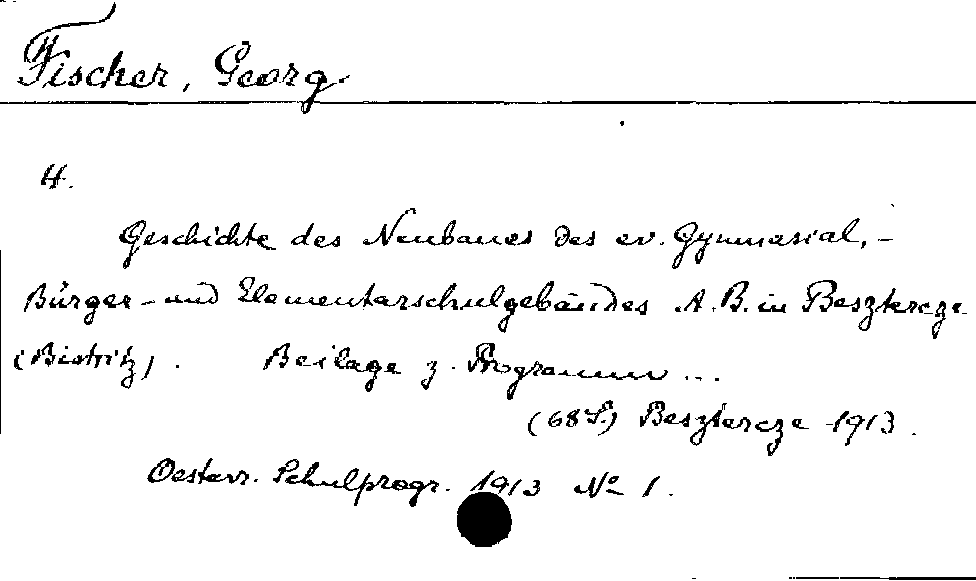 Fischer, Georg
H.
Geschichte des Neubaues des ev. Gymnasial, -
Bürger- und Elementarschulgebäudes A. B. in Besztercze
(Bistritz). Beilage z. Programm ...
(68 S.) Besztercze 1913.
Oesterr. Schulprogr. 1913 No 1.